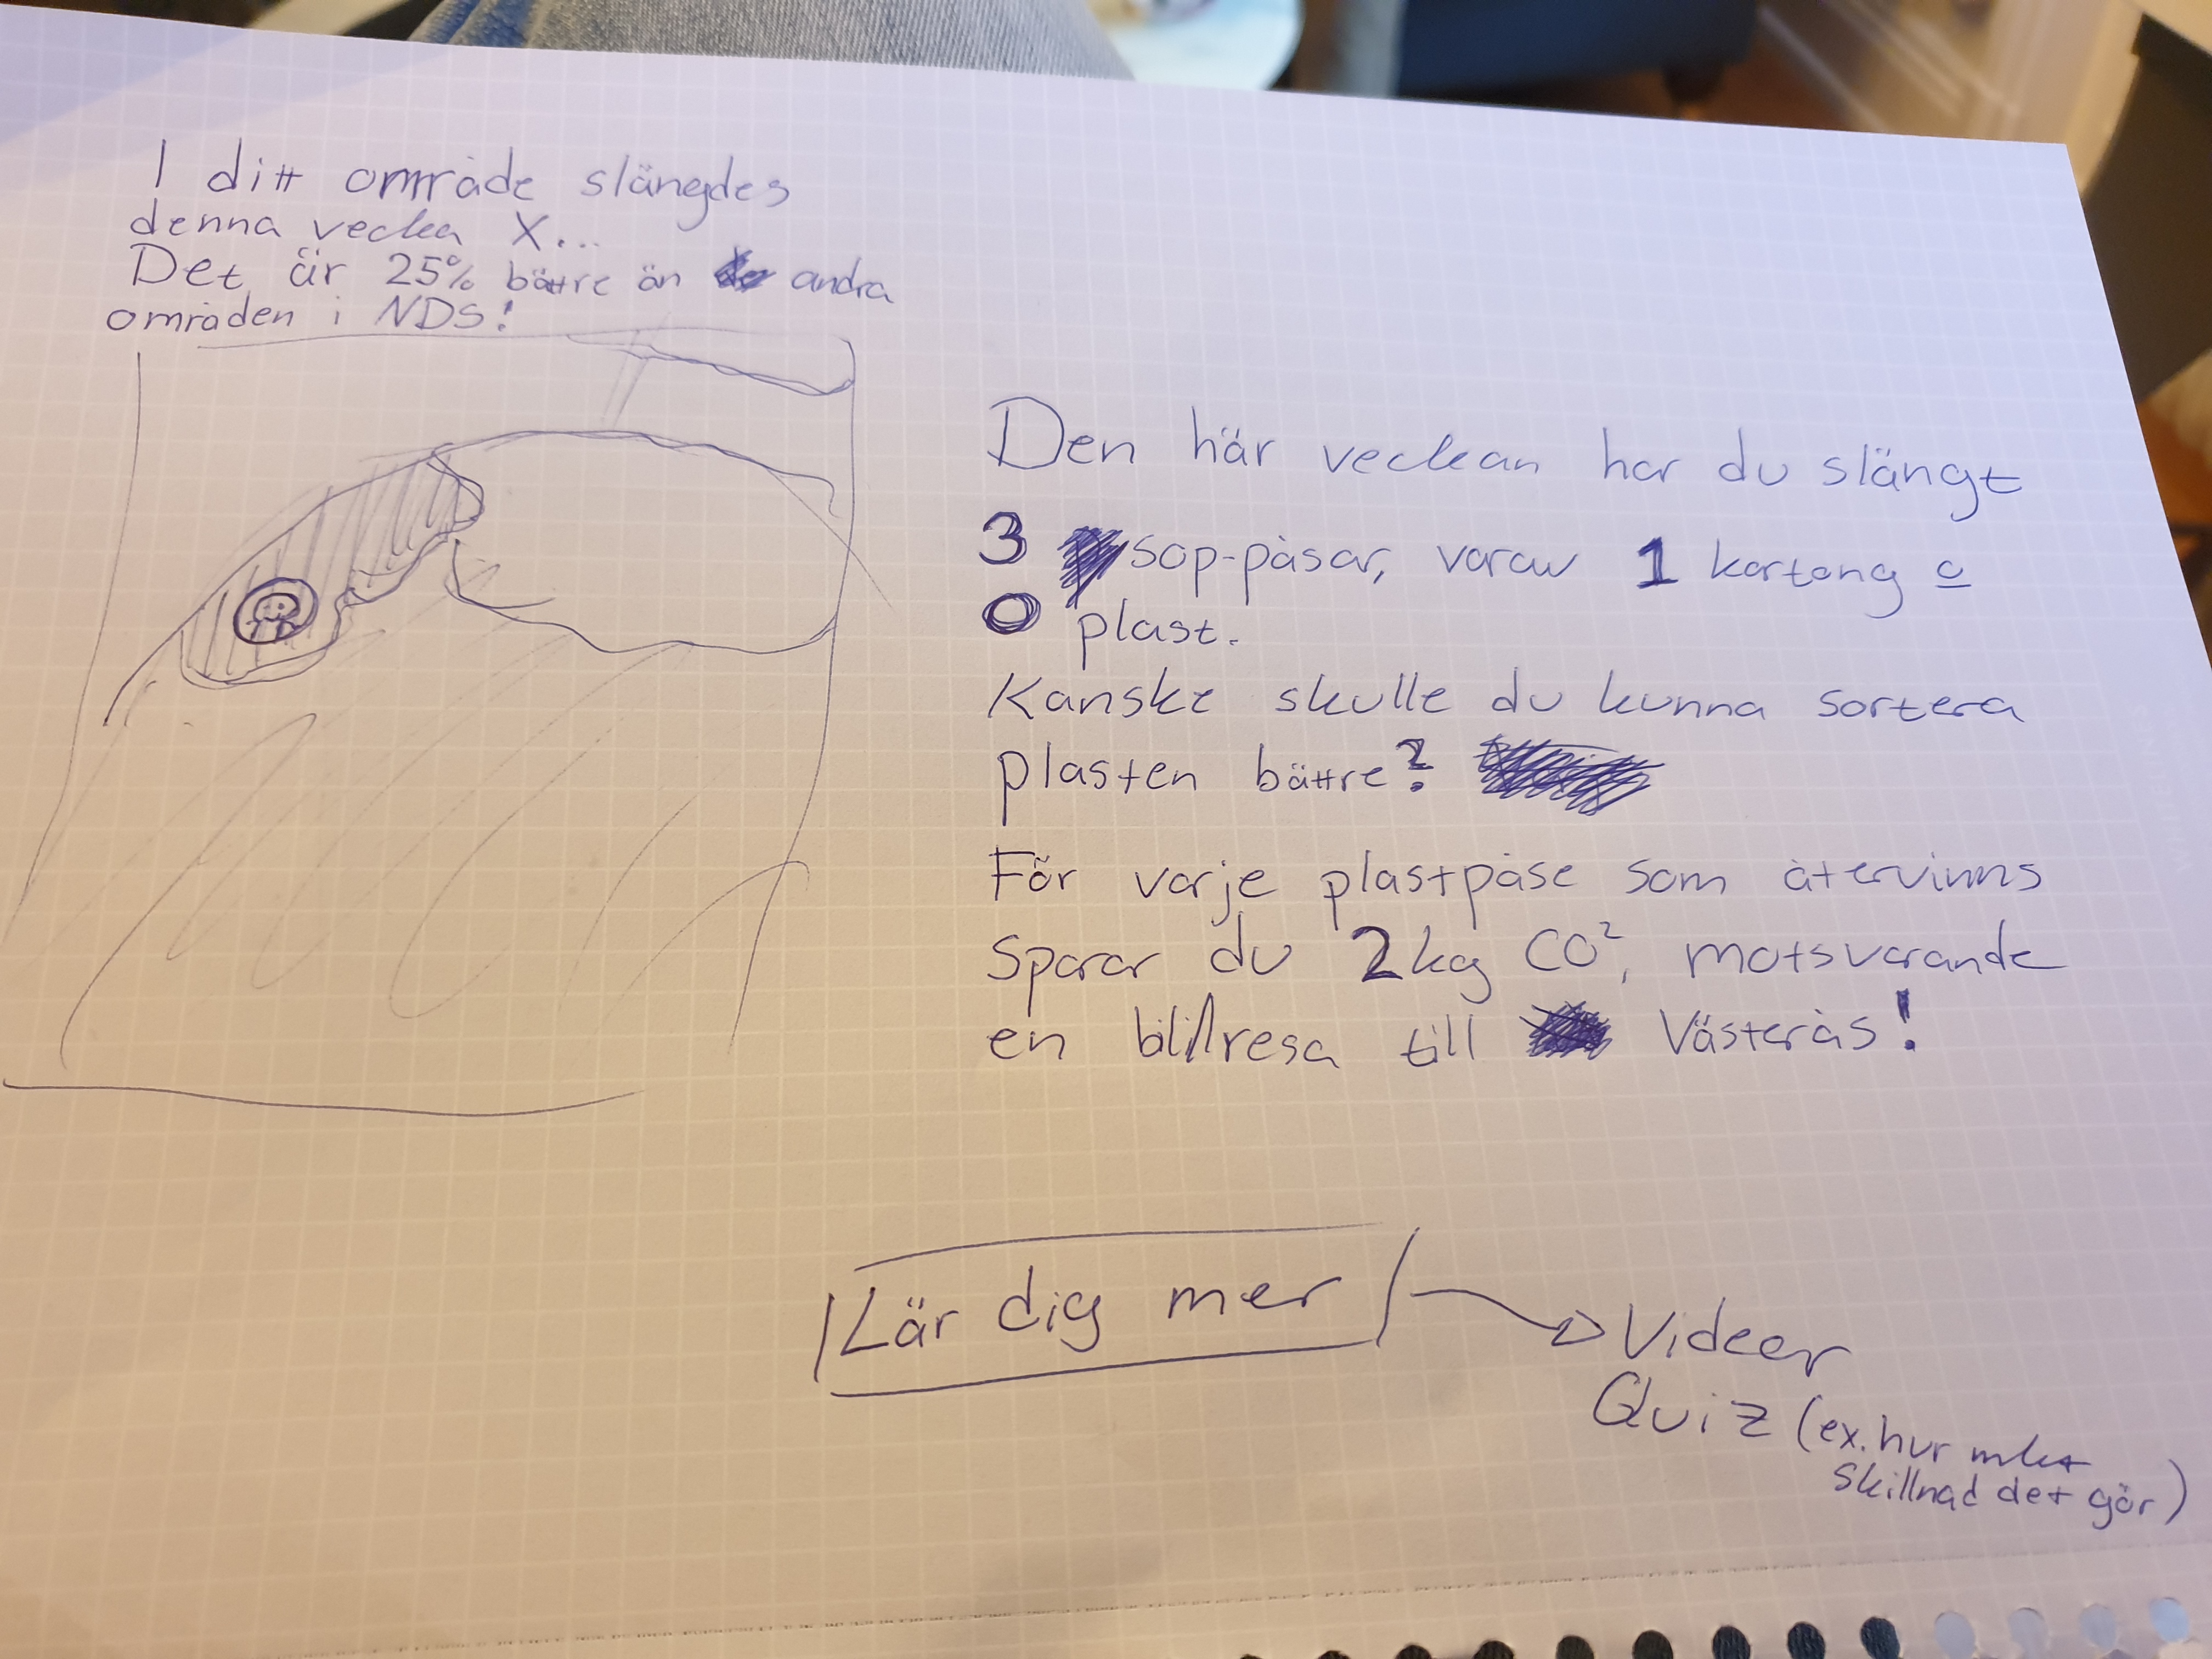 I ditt område slängdes
denna vecka X...
Det är 25% bättre än andra
områden i NDS!
Den här veckan har du slängt
3 sop-påsar, varav 1 kartong o
0 plast.
Kanske skulle du kunna sortera
plasten bättre?
För varje plastpåse som återvinns
sparar du 2kg CO², motsvarande
en bilresa till Västerås!
Lär dig mer
Videor
Quiz (ex. hur mket
skillnad det gör)